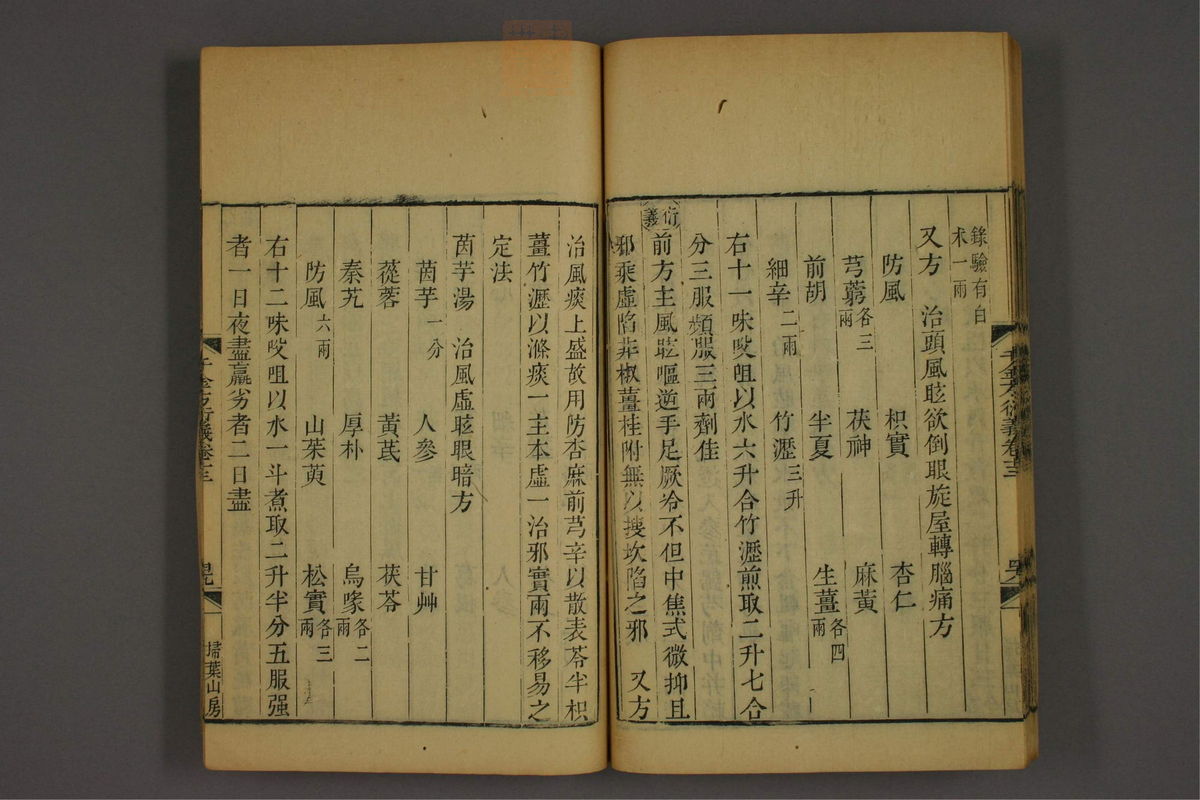 錄驗有白
朮一兩
又方　治頭風眩欲倒眼旋屋轉腦痛方
防風　枳實　杏仁
芎藭各三兩　茯神　麻黃
前胡　半夏　生薑各四兩
細辛二兩　竹瀝三升
右十一味㕮咀以水六升合竹瀝煎取二升七合
分三服頻服三兩劑佳
衍義
前方主風眩嘔逆手足厥冷不但中焦式微抑且
邪乘虛陷非椒薑桂附無以搜坎陷之邪　又方
治風痰上盛故用防杏麻前芎辛以散表苓半枳
薑竹瀝以滌痰一主本虛一治邪實兩不移易之
定法
茵芋湯　治風虛眩眼暗方
茵芋一分　人參　甘艸
蓯蓉　黃芪　茯苓
秦艽　厚朴　烏喙各二兩
防風六兩　山茱萸　松實各三兩
右十二味㕮咀以水一斗煮取二升半分五服强
者一日夜盡羸劣者二日盡
千金方衍義卷十三
掃葉山房